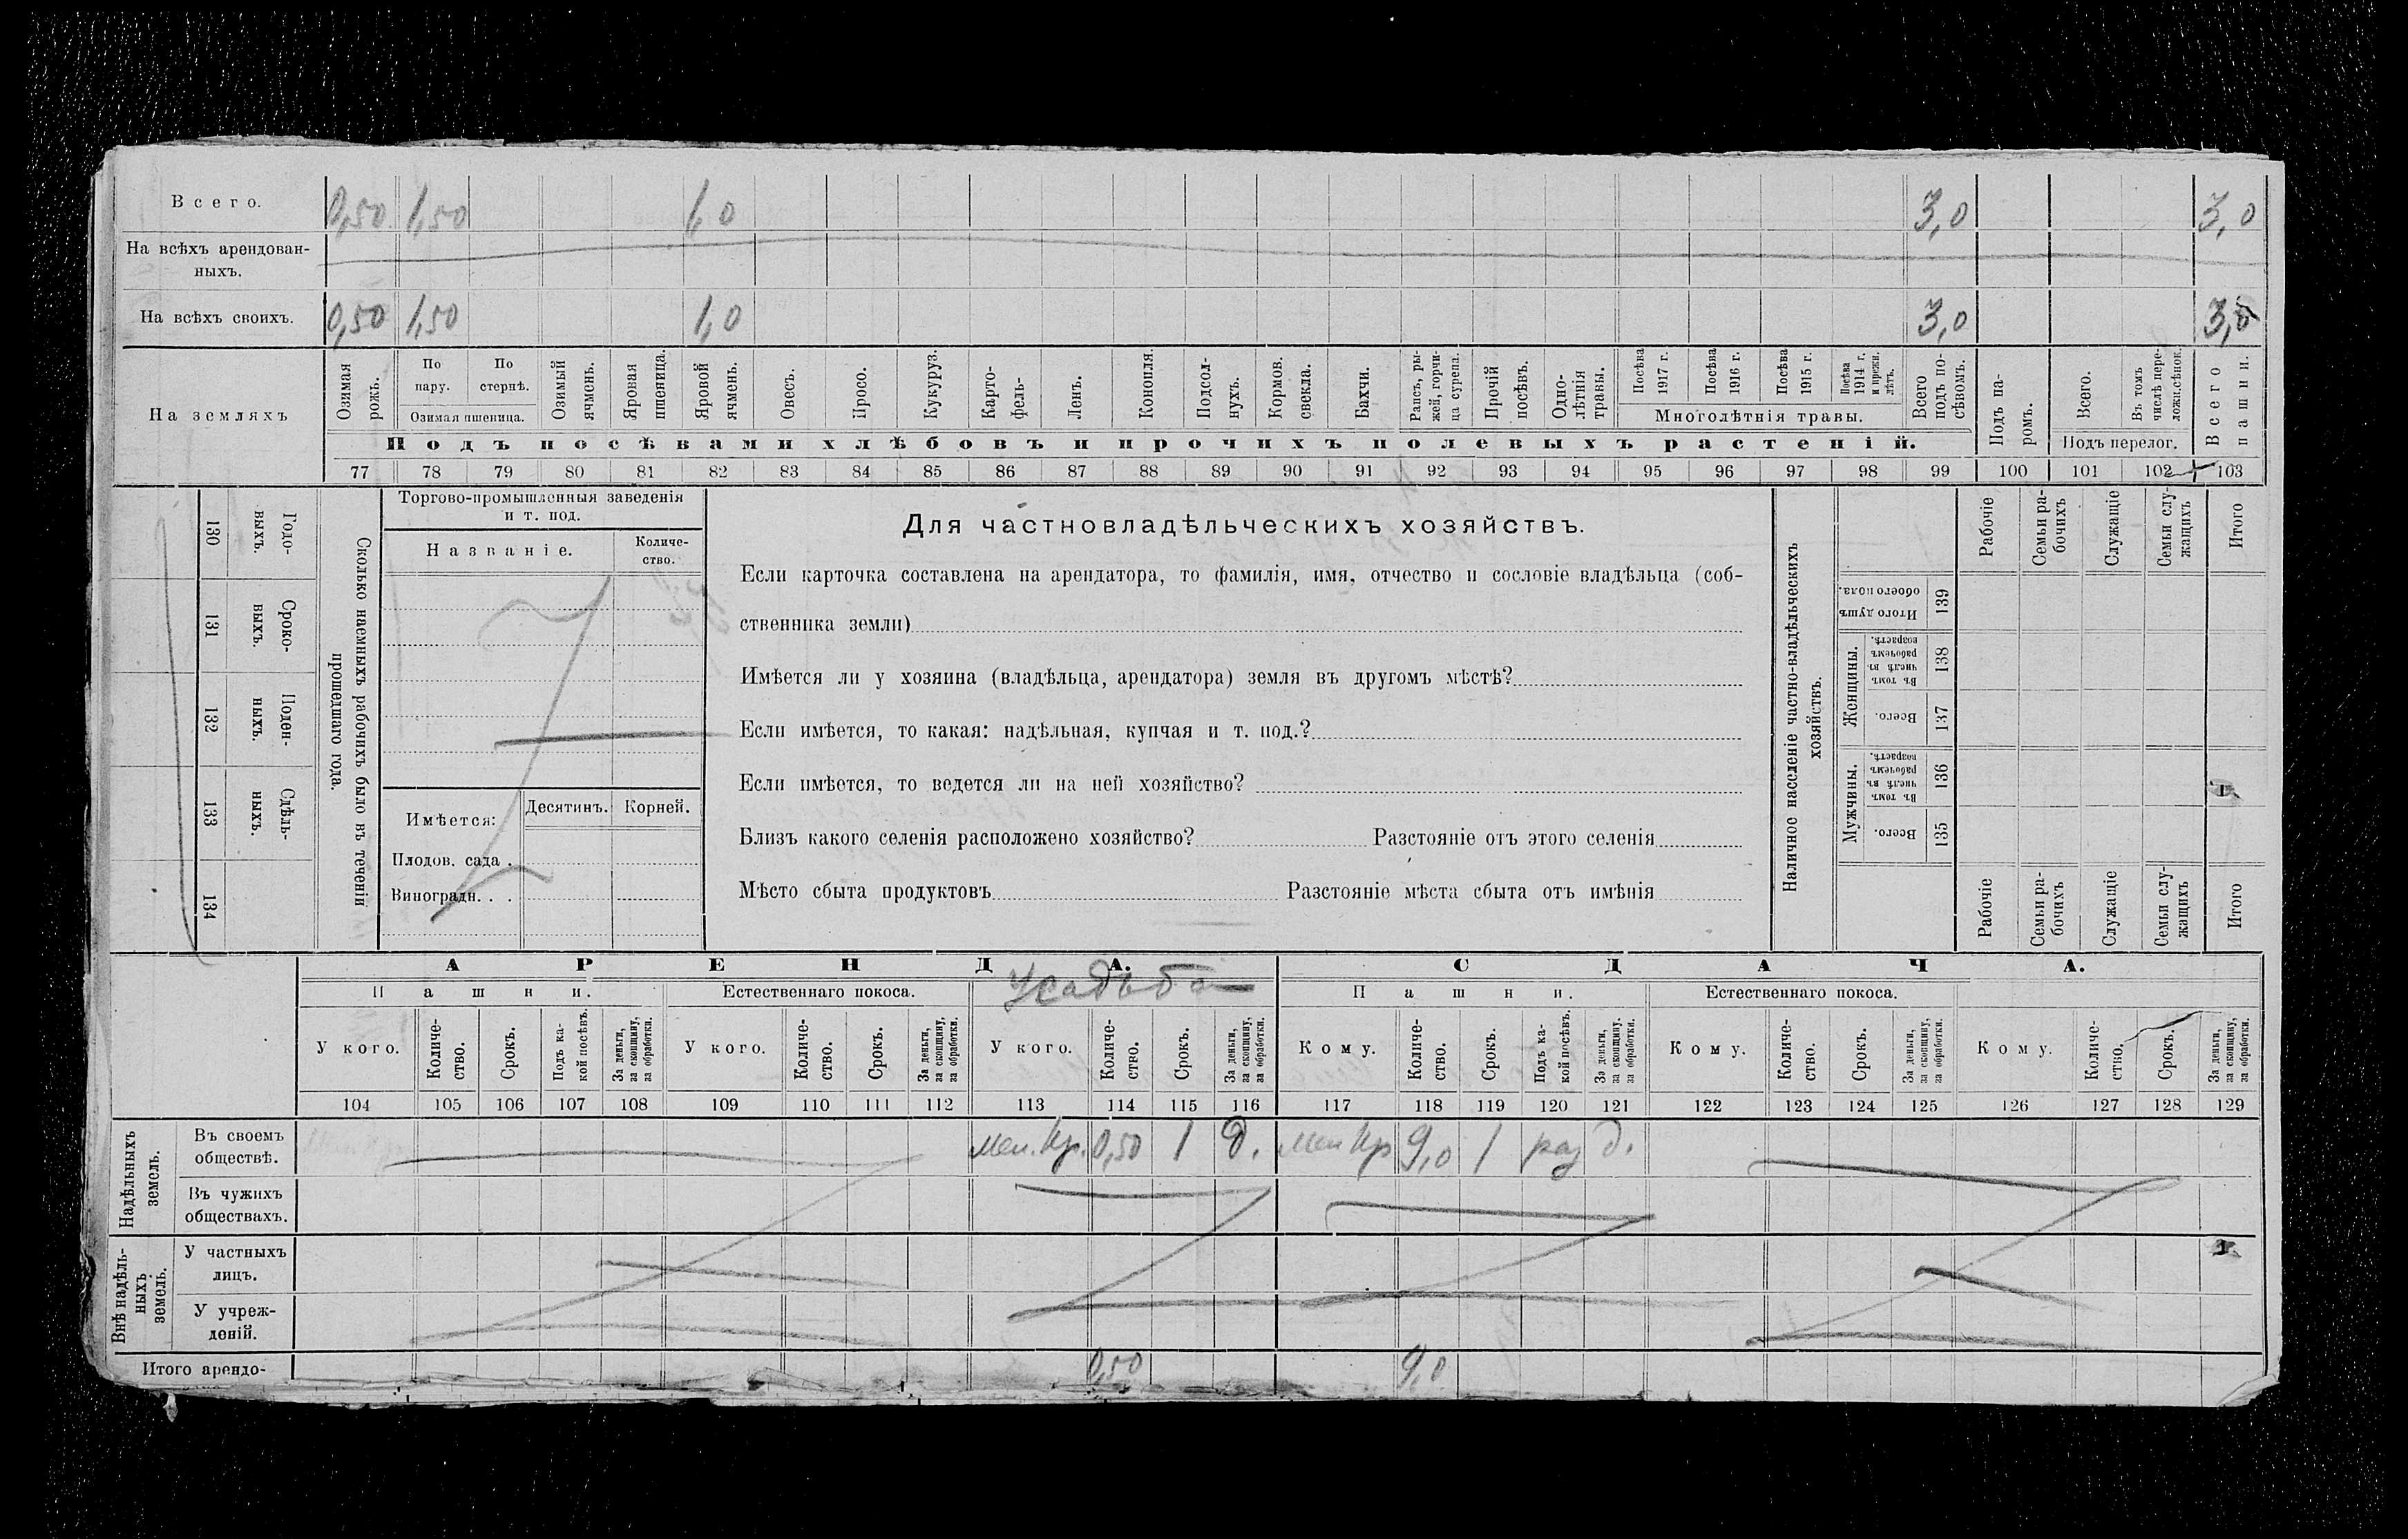 Всего. 0,50 1,50 1,0 3,0 3,0
На всѣхъ арендован-
ныхъ.
На всѣхъ своихъ. 0,50 1,50 1,0 3,0 3,0
На земляхъ
Озимая рожь.
По пару.
По стернѣ.
Озимая пшеница.
Озимый ячмень.
Яровая пшеница.
Яровой ячмень.
Овесъ.
Просо.
Кукуруз.
Карто-
фель-
Ленъ.
Конопля.
Подсол-
нухъ.
Кормов. свекла.
Бахчи.
Рапсъ, ры-
жей, горчи-
ца сурепа.
Прочій посѣвъ.
Одно-
лѣтнія травы.
Посѣва 1917 г.
Посѣва 1916 г.
Посѣва 1915 г.
Посѣва 1914 г. и прежн. лѣтъ.
Многолѣтнія травы.
Всего подъ по-
сѣвомъ.
Подъ па-
ромъ.
Всего.
Въ томъ числѣ пере-
ложн.сѣнок.
Подъ перелог.
Всего пашни.
Подъ посѣвами хлѣбовъ и прочихъ полевыхъ растеній.
77 78 79 80 81 82 83 84 85 86 87 88 89 90 91 92 93 94 95 96 97 98 99 100 101 102 103
130 Годо-
выхъ.
131 Сроко-
выхъ.
132 Поден-
ныхъ.
133 Сдѣль-
ныхъ.
134
Сколько наемныхъ рабочихъ было въ теченіи
прошедшаго года.
Торгово-промышленныя заведенія
и т. под.
Названіе.
Количе-
ство.
Имѣется:
Десятинъ. Корней.
Плодов. сада .
Виноградн. . .
Для частновладѣльческихъ хозяйствъ.
Если карточка составлена на арендатора, то фамилія, имя, отчество и сословіе владѣльца (соб-
ственника земли)
Имѣется ли у хозяина (владѣльца, арендатора) земля въ другомъ мѣстѣ?
Если имѣется, то какая: надѣльная, купчая и т. под.?
Если имѣется, то ведется ли на ней хозяйство?
Близъ какого селенія расположено хозяйство? Разстояніе отъ этого селенія
Мѣсто сбыта продуктовъ Разстояніе мѣста сбыта отъ имѣнія
Наличное населеніе частно-владѣльческихъ
хозяйствъ.
Рабочіе
Семьи ра-
бочихъ
Служащіе
Семьи слу-
жащихъ
Итого
Итого душъ
обоего пола.
139
Женщины.
Въ томъ числѣ въ рабочемъ возрастѣ.
138
Всего.
137
Мужчины.
Въ томъ числѣ въ рабочемъ возрастѣ.
136
Всего.
135
Рабочіе
Семьи ра-
бочихъ
Служащіе
Семьи слу-
жащихъ
Итого
АРЕНДА. СДАЧА.
Пашни. Естественнаго покоса. Усадьба Пашни. Естественнаго покоса.
У кого.
Количе-
ство.
Срокъ.
Подъ ка-
кой посѣвъ.
За деньги,
за скопщину,
за обработки.
У кого.
Количе-
ство.
Срокъ.
За деньги,
за скопщину,
за обработки.
У кого.
Количе-
ство.
Срокъ.
За деньги,
за скопщину,
за обработки.
Кому.
Количе-
ство.
Срокъ.
Подъ ка-
кой посѣвъ.
За деньги,
за скопщину.
за обработки.
Кому.
Количе-
ство.
Срокъ.
За деньги,
за скопщину,
за обработки.
Кому.
Количе-
ство.
Срокъ.
За деньги,
за скопщину,
за обработки.
104 105 106 107 108 109 110 111 112 113 114 115 116 117 118 119 120 121 122 123 124 125 126 127 128 129
Надѣльныхъ
земель.
Въ своемъ
обществѣ. 0,50 1 д. 9,0 1 раз д.
Въ чужихъ
обществахъ.
Внѣ надѣль-
ныхъ
земель.
У частныхъ
лицъ.
У учреж-
деній.
Итого арендо- 0,50 9,0